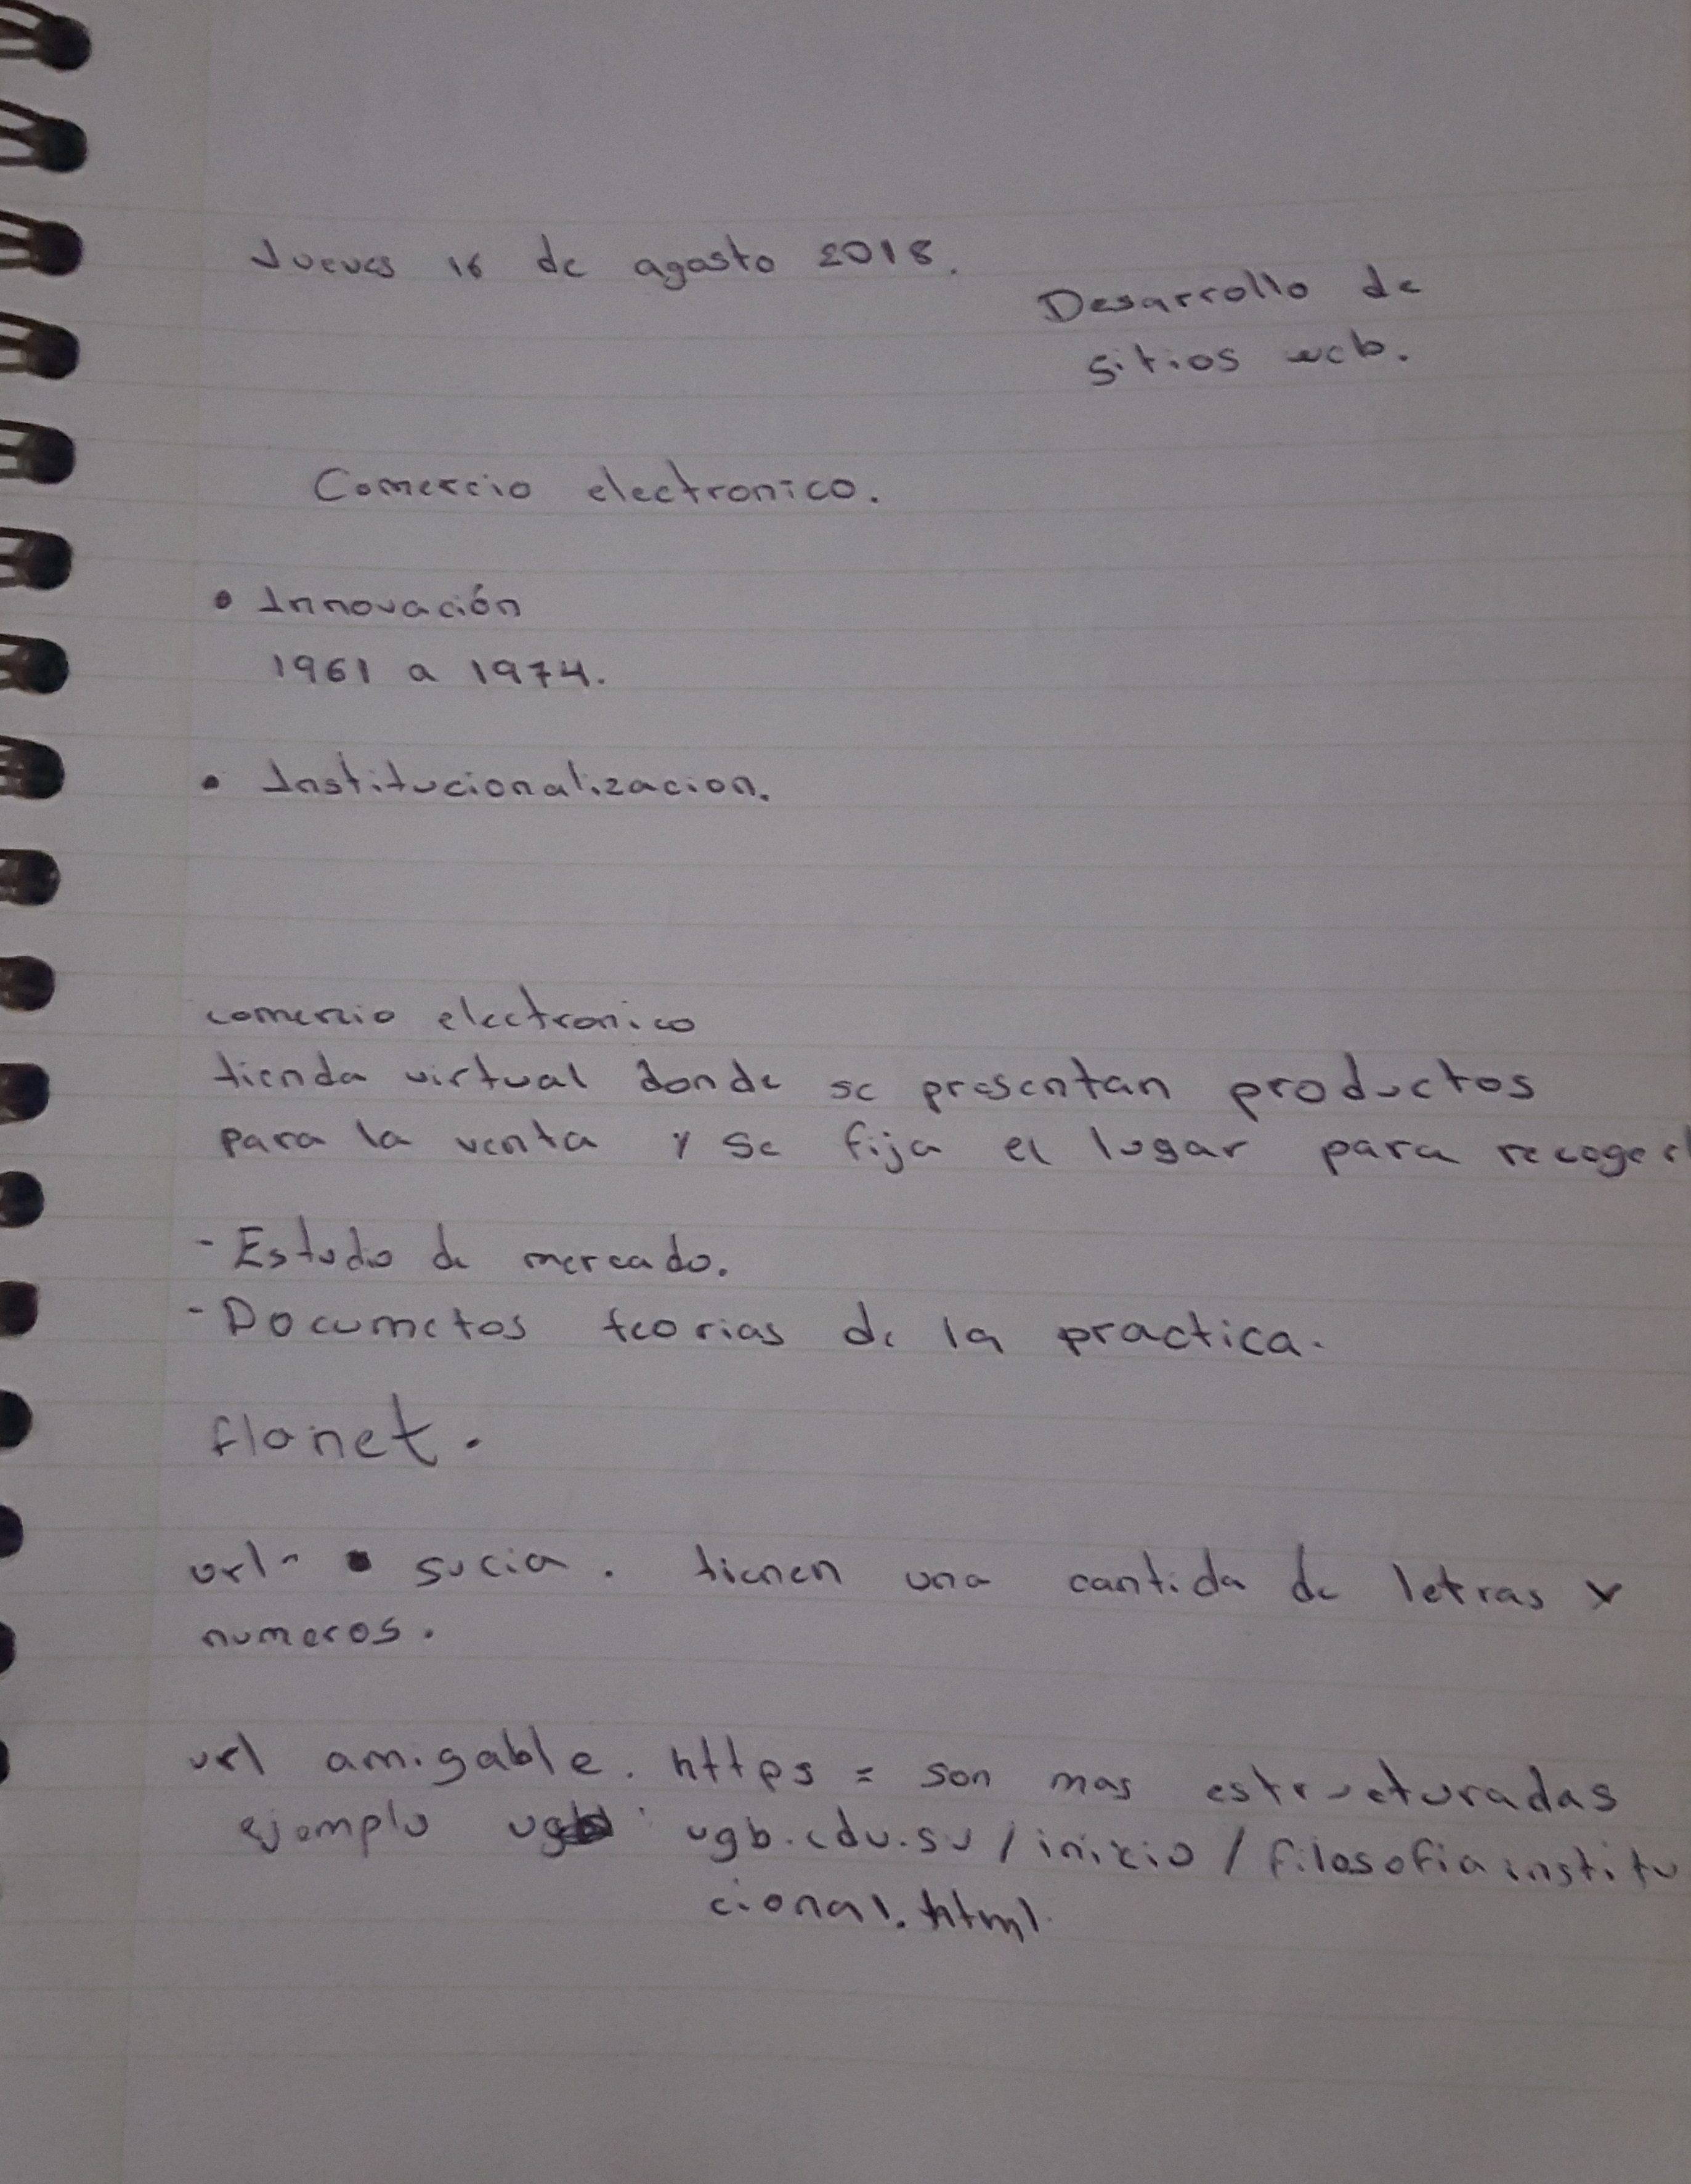 Jueves 16 de agosto 2018.
Desarrollo de
sitios web.
Comercio electronico.
• Innovación
1961 a 1974.
• Institucionalizacion.
comercio electronico
tienda virtual donde se presentan productos
para la venta y se fija el lugar para recoger
- Estudio de mercado.
- Documetos teorias de la practica.
flonet.
url - sucia. tienen una cantida de letras y
numeros.
url amigable. https = son mas estructuradas
ejemplo : ugb.edu.sv/inicio/filosofiainstitu
cional.html.